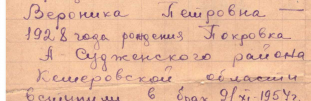 Вероника Петровна —
1928 года рождения Покровка
А Судженского района
Кемеровской области
вступили в брак 9/XI-1954г.